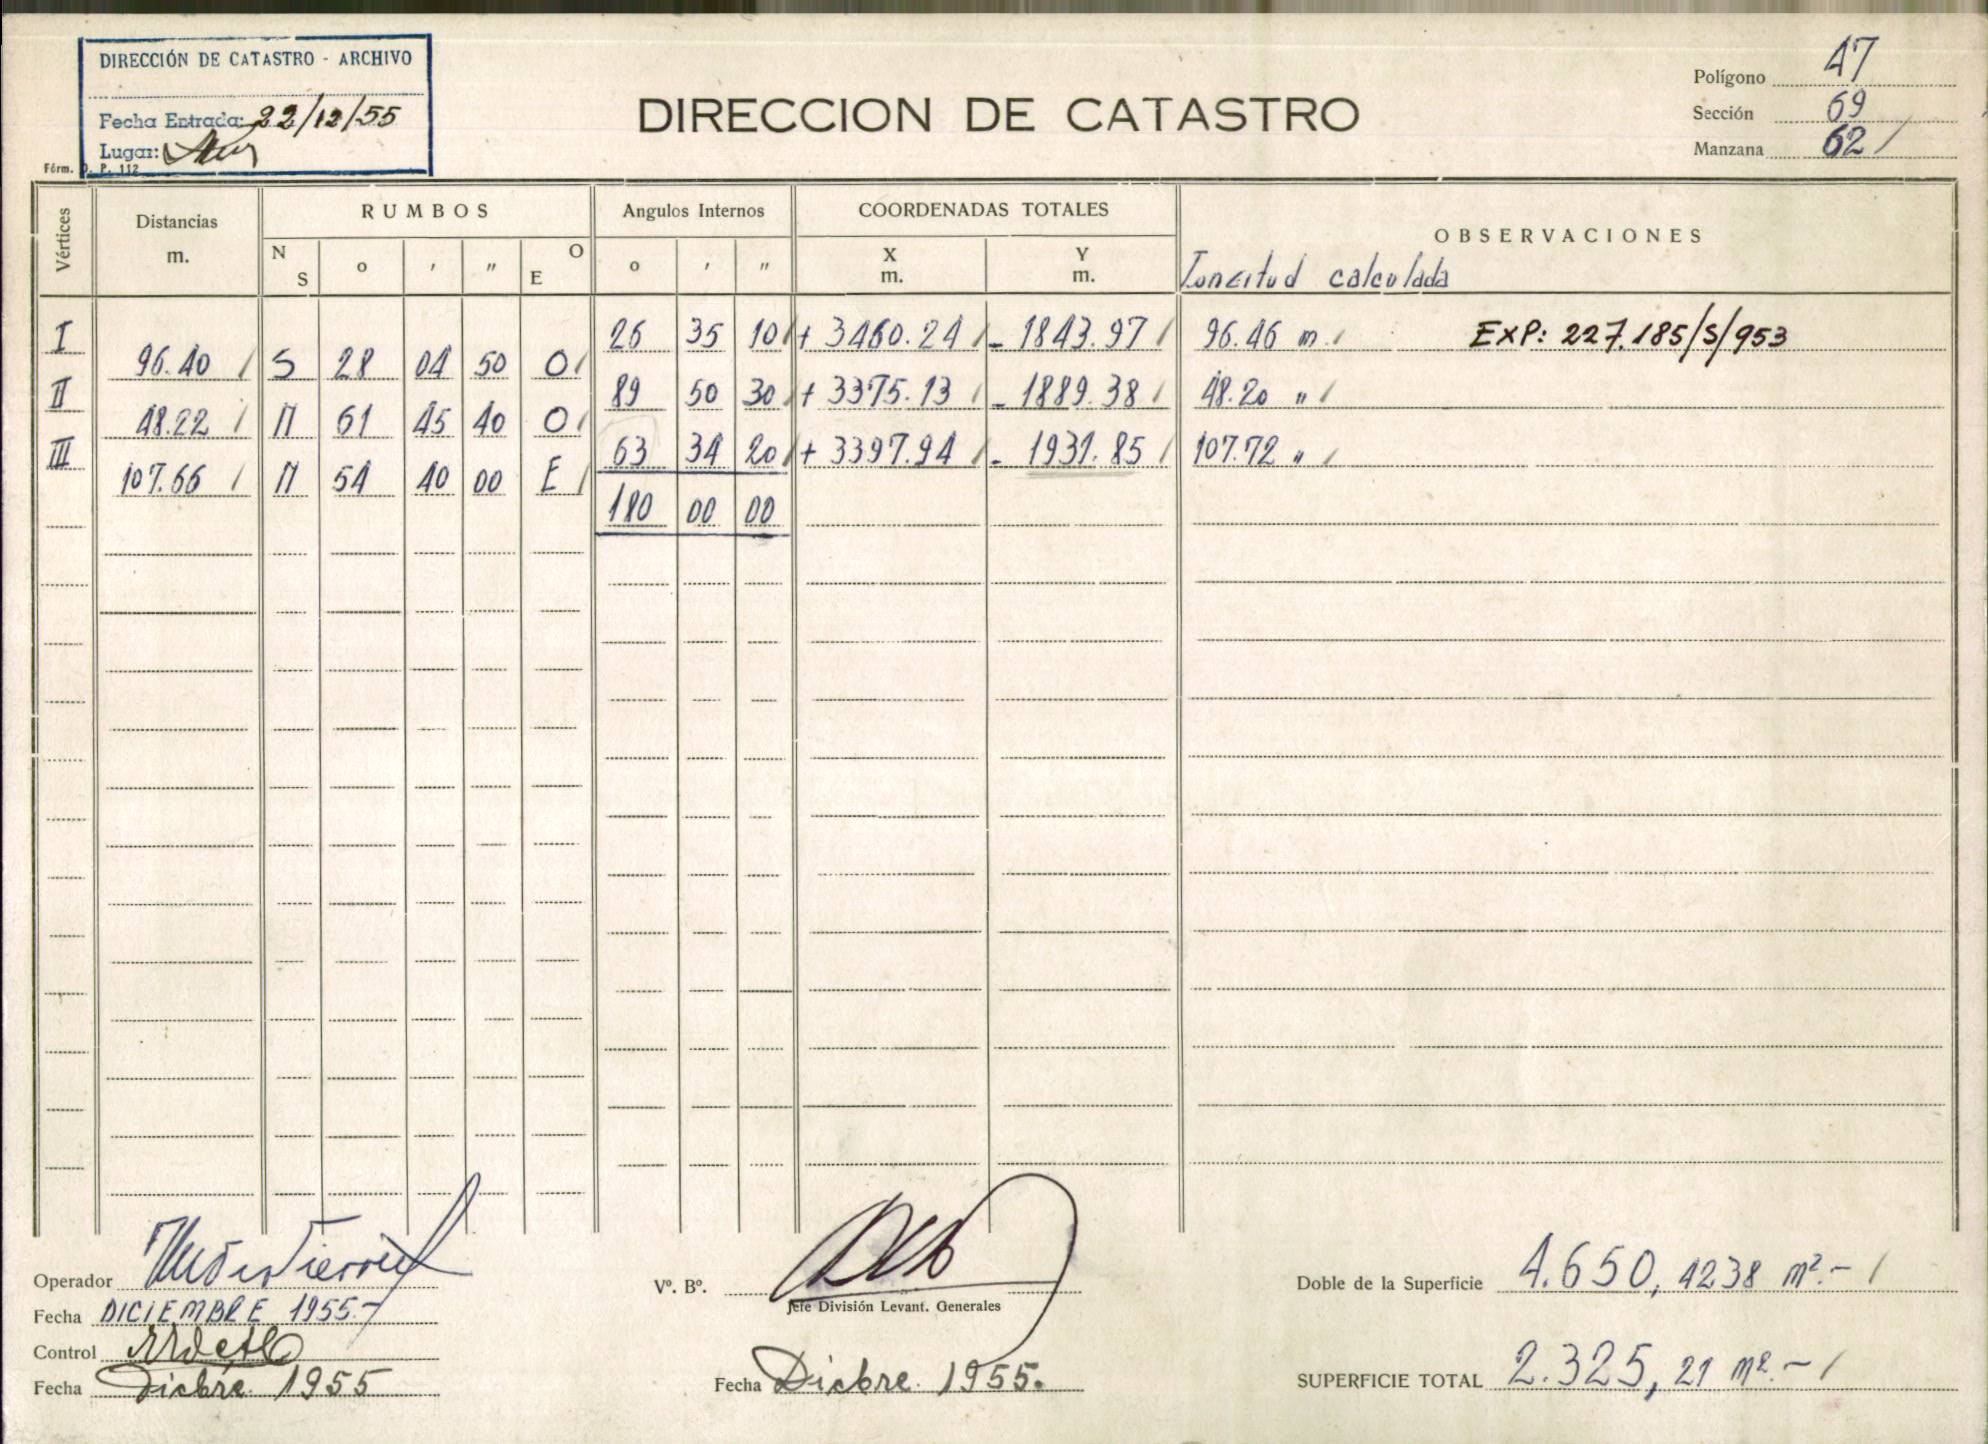 DIRECCIÓN DE CATASTRO - ARCHIVO
Fecha Entrada: 22/12/55
Lugar:
Fórm. D. P. 112
DIRECCION DE CATASTRO
Polígono 47
Sección 69
Manzana 62 /
Vértices Distancias m. RUMBOS N S o ' " E O Angulos Internos o ' " COORDENADAS TOTALES X m. Y m. OBSERVACIONES
Longitud calculada
I 26 35 10 / + 3460.24 / - 1843.97 / 96.46 m. / EXP: 227.185/S/953
96.40 / S 28 04 50 O /
II 89 50 30 / + 3375.13 / - 1889.38 / 48.20 " /
48.22 / N 61 45 40 O /
III 63 34 20 / + 3397.94 / - 1931.85 / 107.72 " /
107.66 / N 54 40 00 E /
180 00 00
Operador
Fecha DICIEMBRE 1955.-
Control
Fecha Dicbre. 1955
Vº. Bº.
Jefe División Levant. Generales
Fecha Dicbre. 1955.
Doble de la Superficie 4.650,4238 m².- /
SUPERFICIE TOTAL 2.325,21 m².- /